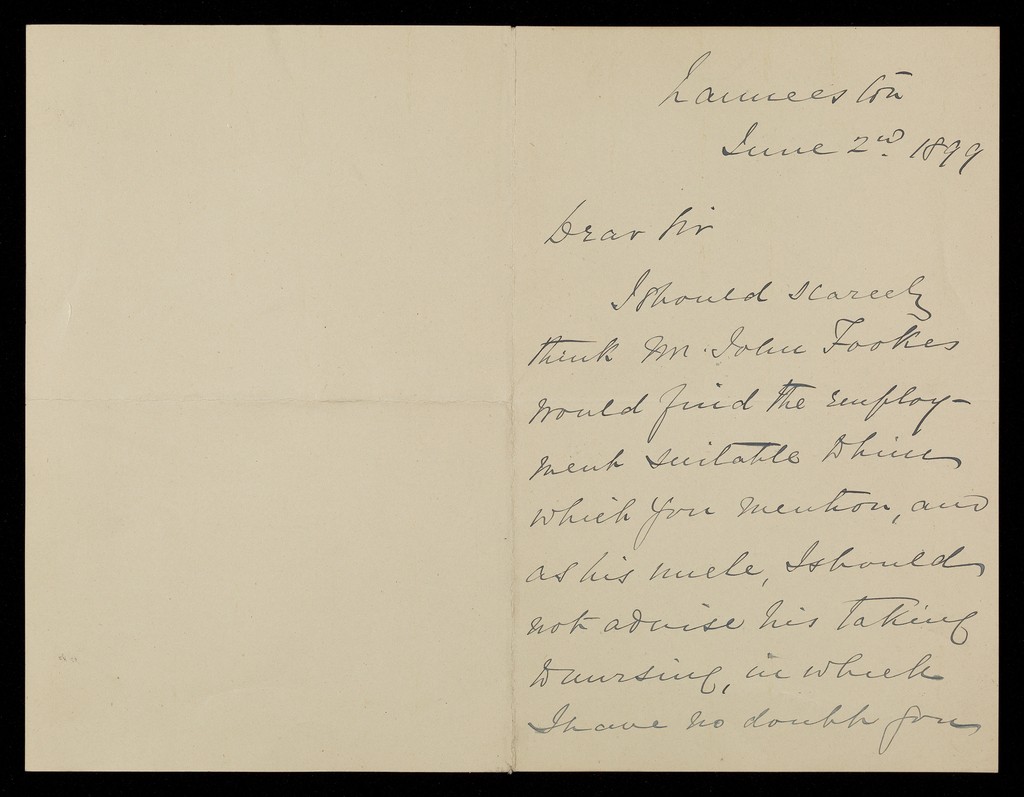 Launceston
June 2nd. 1899
Dear Sir
I should scarcely
think Mr. John Fookes
would find the employ-
ment suitable to him
which you mention, and
as his uncle, I should
not advise his taking
to nursing, in which
I have no doubt you